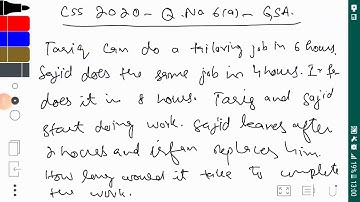 CSS 2020 - Q. No 6(a) - GSA.
Tariq can do a tailoring job in 6 hours,
Sajid does the same job in 4 hours.
does it in 8 hours. Tariq and Sajid
start doing work. Sajid leaves after
2 hours and irfan replaces him.
How long would it take to complete
the work.
19% 13:00